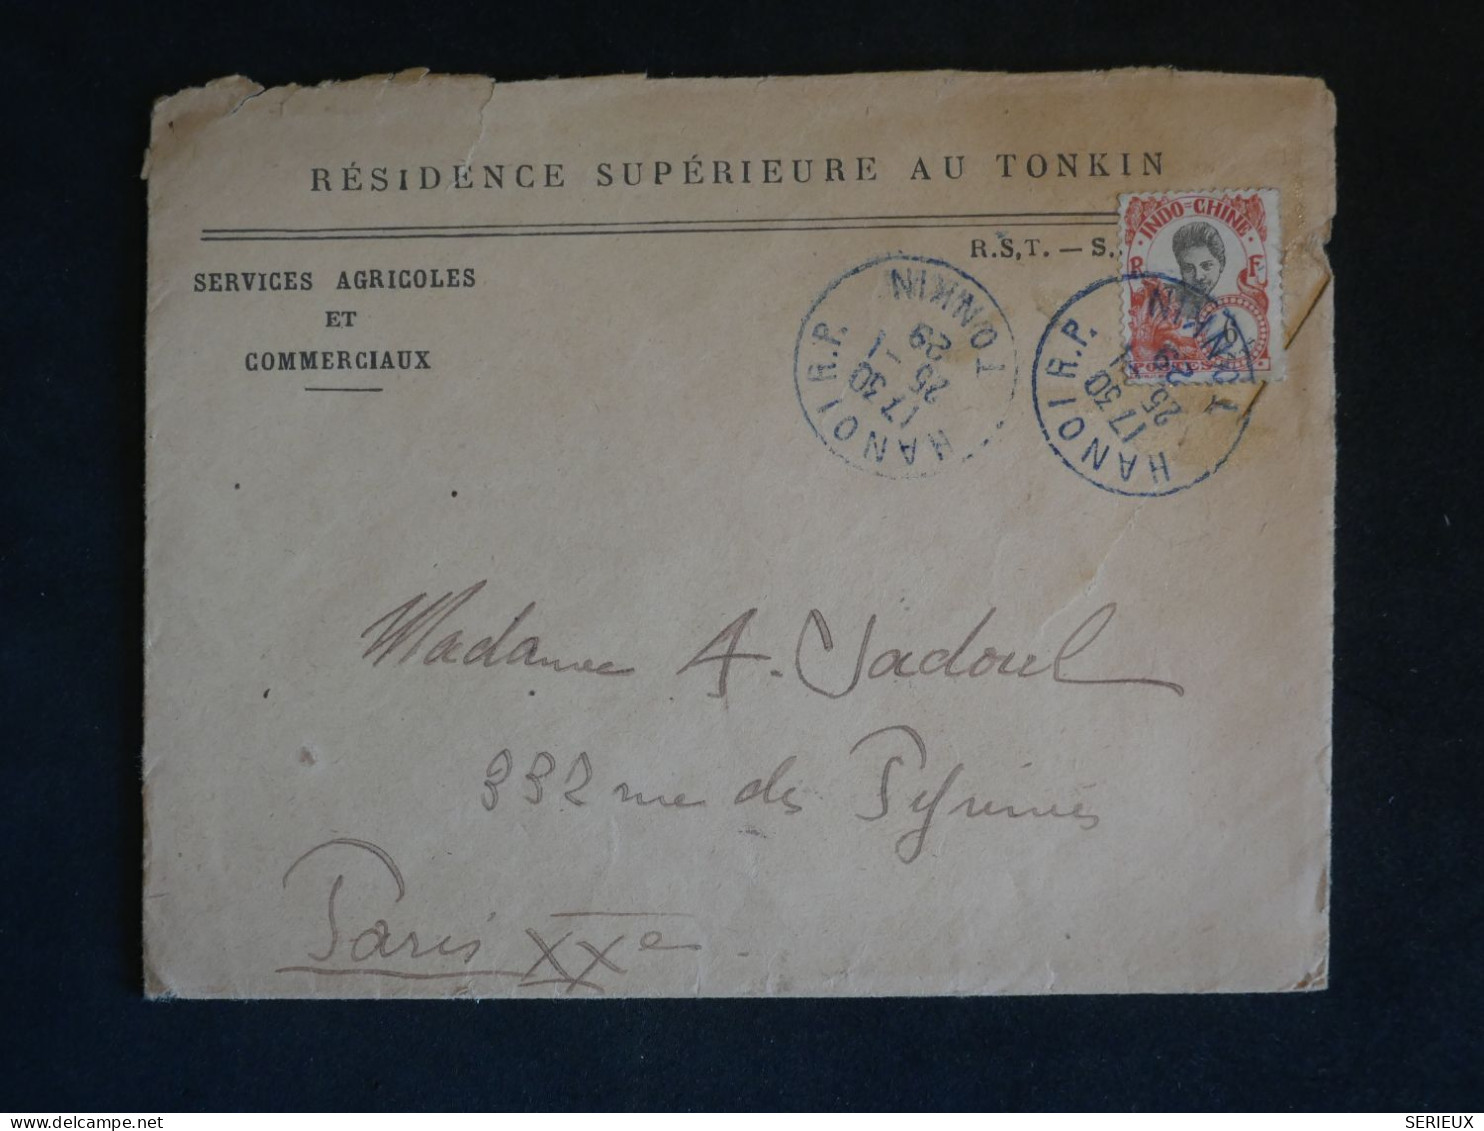 RÉSIDENCE SUPÉRIEURE AU TONKIN
R.S.T. — S.
SERVICES AGRICOLES
ET
COMMERCIAUX
INDO=CHINE
R F
6
POSTES
HANOI R.P. TONKIN
17 30
25 1
29
HANOI R.P. TONKIN
17 30
25 1
29
Madame A. Jadoul
332 rue des Pyrénées
Paris XXe
SERIEUX
delcampe.net